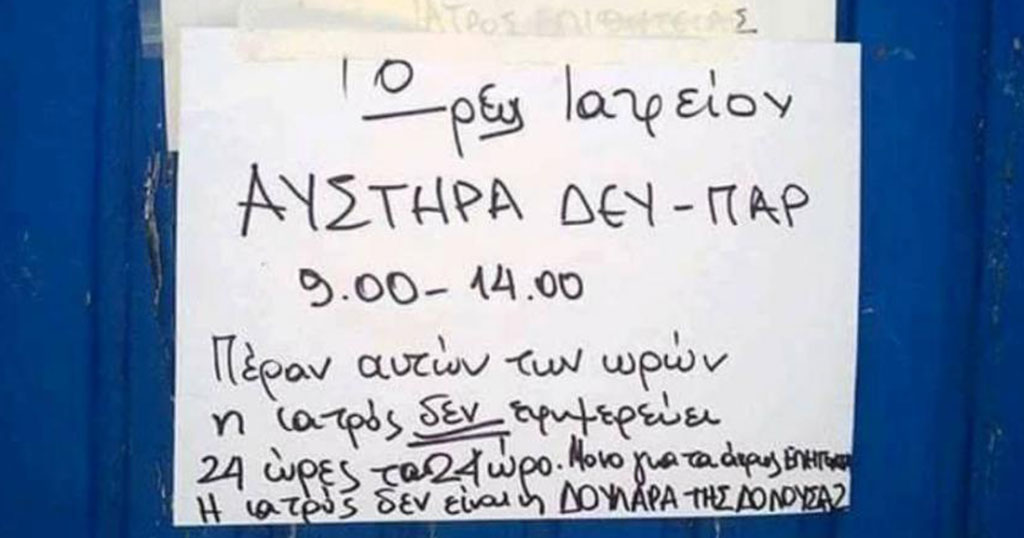 ΙΑΤΡΟΣ ΕΠΙΘΗΤΕΙΑΣ
Ὁρες Ιατρείου
ΑΥΣΤΗΡΑ ΔΕΥ-ΠΑΡ
9.00-14.00
Πέραν αυτών των ωρών
η ιατρός δεν εφημερεύει
24 ώρες το 24ώρο. Μονο για τα άκρως
Η ιατρός δεν είναι η ΔΟΥΛΑΡΑ ΤΗΣ ΔΟΝΟΥΣΑΣ